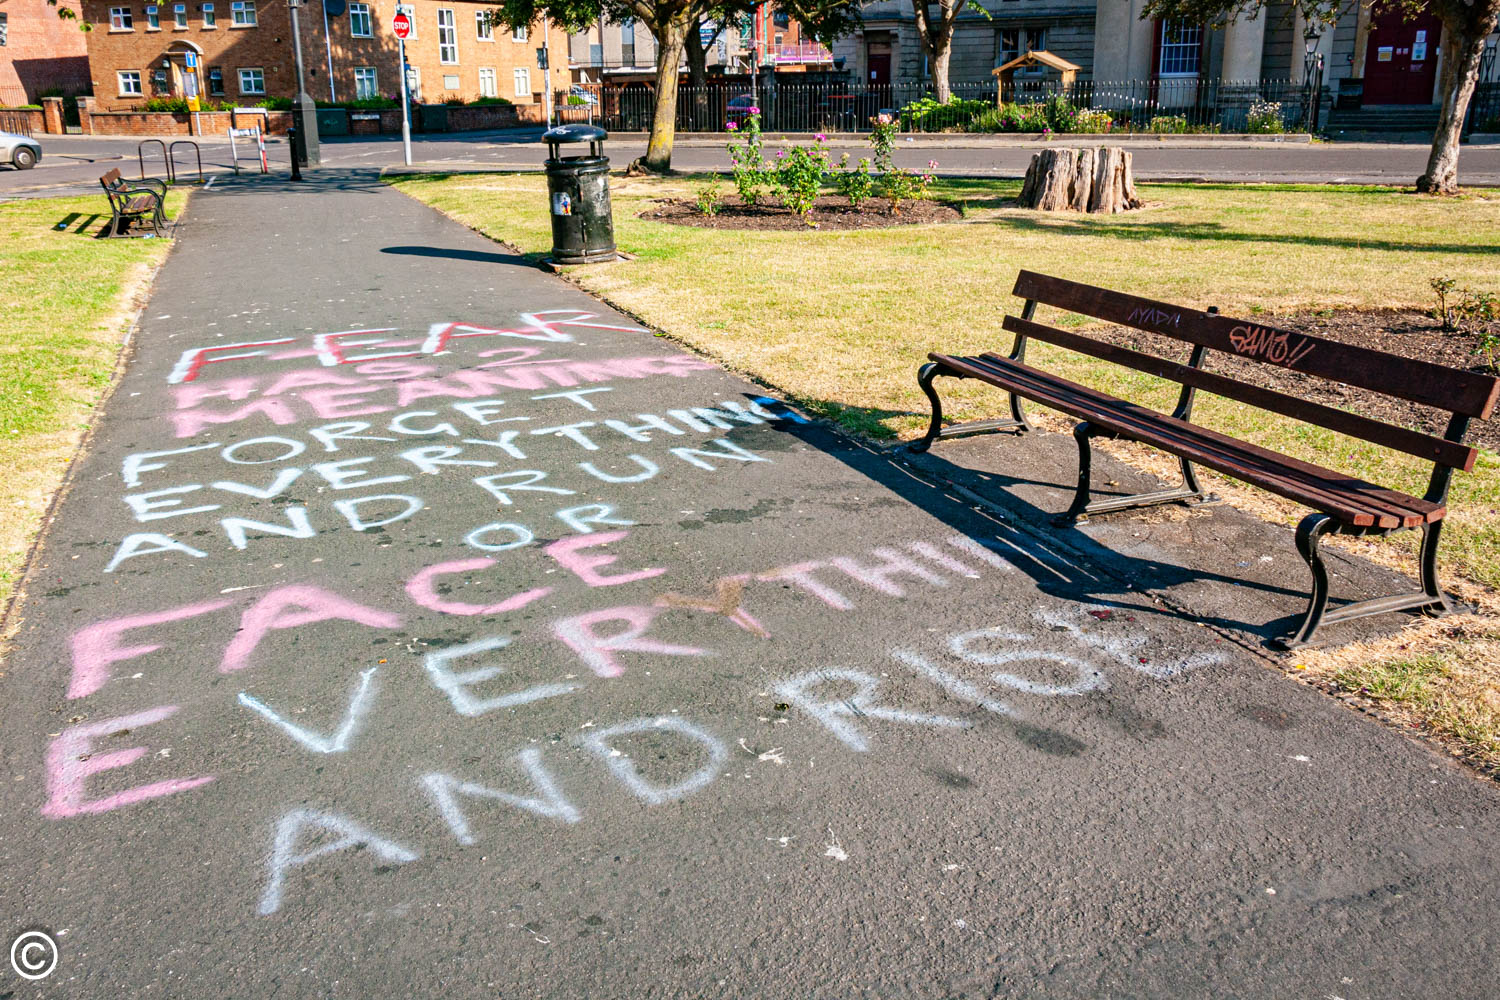 STOP
FEAR
HAS 2
MEANINGS
FORGET
EVERYTHING
AND RUN
OR
FACE
EVERYTHING
AND RISE
AYADN
SAMO!!
©